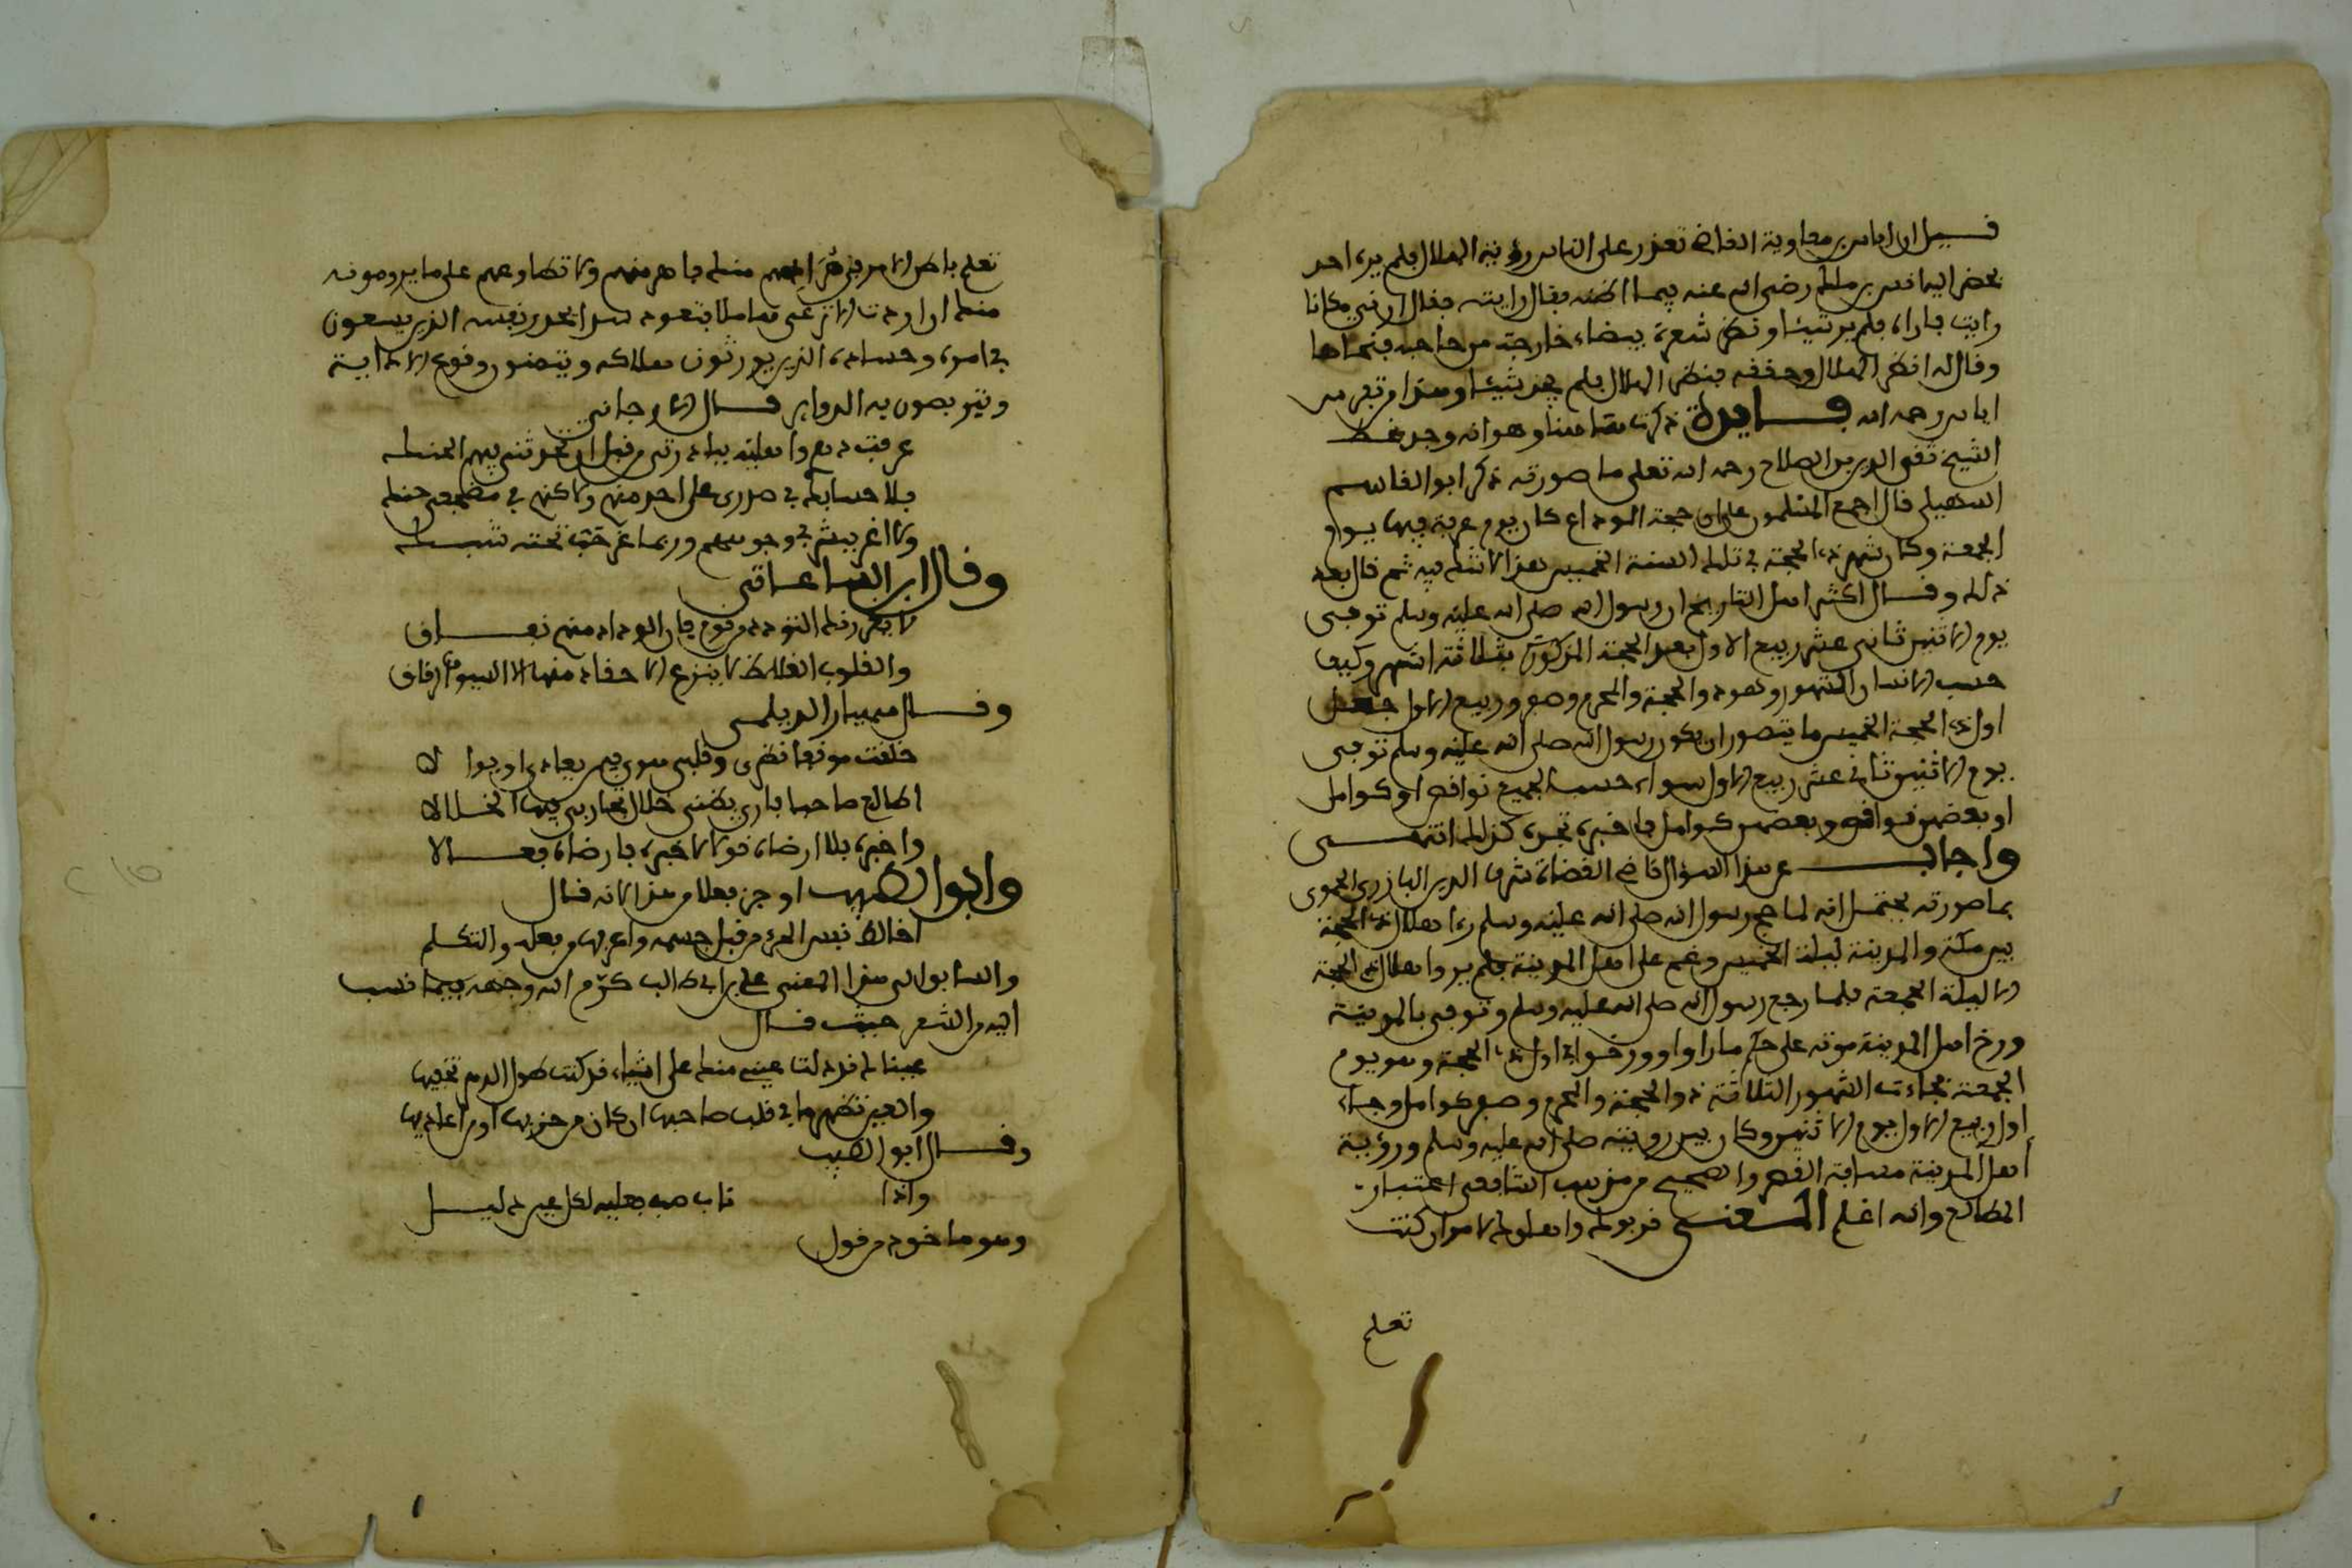 قيل ان اياس بن معاوية القاضي تعذر على الناس رؤية الهلال فلم يره احد
بحضر اليه انس بن ملك رضي الله عنه فقال رايته فقال ارني مكانا
رايت فاراه فلم ير شيئا ونظر شعرة بيضاء خارجة من حاجبه فنحاها
وقال له انظر الهلال وحققه فنظر الهلال فلم يجد شيئا وهذا من تفرس
اياس رحمه الله فايدة ذكرت هاهنا وهو انه وجد بخط
الشيخ تقي الدين بن الصلاح رحمه الله تعلى ما صورته ذكر ابو القاسم
السهيلي قال اجمع المسلمون على ان حجة الوداع كان يوم عرفة فيها يوم
الجمعة وكان شهر ذي الحجة في تلك السنة الخميس هذا لا شك فيه ثم قال بعد
ذلك وقال اكثر اهل التاريخ ان رسول الله صلى الله عليه وسلم توفي
يوم الاثنين ثاني عشر ربيع الاول بعد الحجة المذكورة بثلاثة اشهر وكيف
حسب الانسان الشهور وهو ذو الحجة والمحرم وصفر وربيع الاول جعل
اول ذي الحجة الخميس ما يتصور ان يكون رسول الله صلى الله عليه وسلم توفي
يوم الاثنين ثاني عشر ربيع الاول سواء حسب الجميع نواقص او كوامل
او بعضهن نواقص وبعضهن كوامل فاختبره تجده كذلك انتهى
واجاب عن هذا السؤال قاضي القضاة شرف الدين البارزي الحموي
بما صورته يحتمل انه لما حج رسول الله صلى الله عليه وسلم راى هلال ذي الحجة
بين مكة والمدينة ليلة الخميس وغم على اهل المدينة فلم يروا هلال ذي الحجة
الا ليلة الجمعة فلما رجع رسول الله صلى الله عليه وسلم وتوفي بالمدينة
ورخ اهل المدينة موته على حكم ما راوا وورخوا اول ذي الحجة وهو يوم
الجمعة فجاءت الشهور الثلاثة ذو الحجة والمحرم وصفر كوامل وجاء
اول ربيع الاول يوم الاثنين وكان بين رؤيته صلى الله عليه وسلم ورؤية
اهل المدينة مسافة القصر والصحيح من مذهب الشافعي اعتبار
المطالع والله اعلم المعنى قربوك وابعدوك لامر ان كنت
تعلم
تعلم باطن الامر في منك فاهرب منهم ولا تطاوعهم على ما يرومونه
منك ان اردت الا ترعى هاملا فتعود الحذر نفسه الذين يسعون
في امره وحساده الذين يورثون هلاكه ويتمنون وقوع الاذاية
ويتربصون به الدواير قال الارجاني
عرفت دهري واهليه ببادرتي من قبل ان نجذتني فيهم الحنك
فلا حسايك في صدري على احد منهم ولا كنهم في مضجعي حسك
ولا اغر ببشر في وجوههم وربما غر حب تحته شبك
وقال ابن الساعاتي
لا يغرنك التودد من قوم فان الوداد منهم نفاق
والقلوب الغلاظ لا ينزع الاحقاد منها الا السيوف الرقاق
وقال مهيار الديلمي
خلقت موقعا نظري وقلبي سوى فيمن يعادي او يوالا
اطالع صاحبا بادي يظني خلال تجاربي فيها الخلالا
واخبره بلا ارضاه قولا لا خبره بارضاه فعالا
وابوا الطيب اوجز فعلا من هذا لانه قال
اخالط نفس المرء من قبل جسمه واعرفها من فعله والتكلم
والسابق الى هذا المعنى علي بن ابي طالب كرم الله وجهه فيما نسب
اليه من الشعر حيث قال
عيناك قد دلت عيني منك على اشياء قد كنت طول الدهر تخفيها
والعين تظهر ما في قلب صاحبها ان كان من حزبها او من اعاديها
وقال ابو الطيب
واذا خامر الهوى قلب صب فعليه لكل عين دليل
وهو ماخوذ من قول